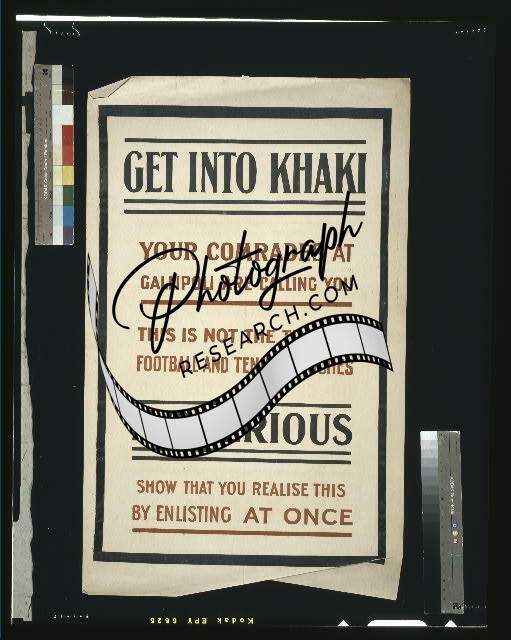 GET INTO KHAKI
YOUR COMRADES AT
GALLIPOLI ARE CALLING YOU
THIS IS NOT THE
FOOTBALL AND
RIOUS
SHOW THAT YOU REALISE THIS
BY ENLISTING AT ONCE
Photograph
RESEARCH.COM
Kodak EPY 6625